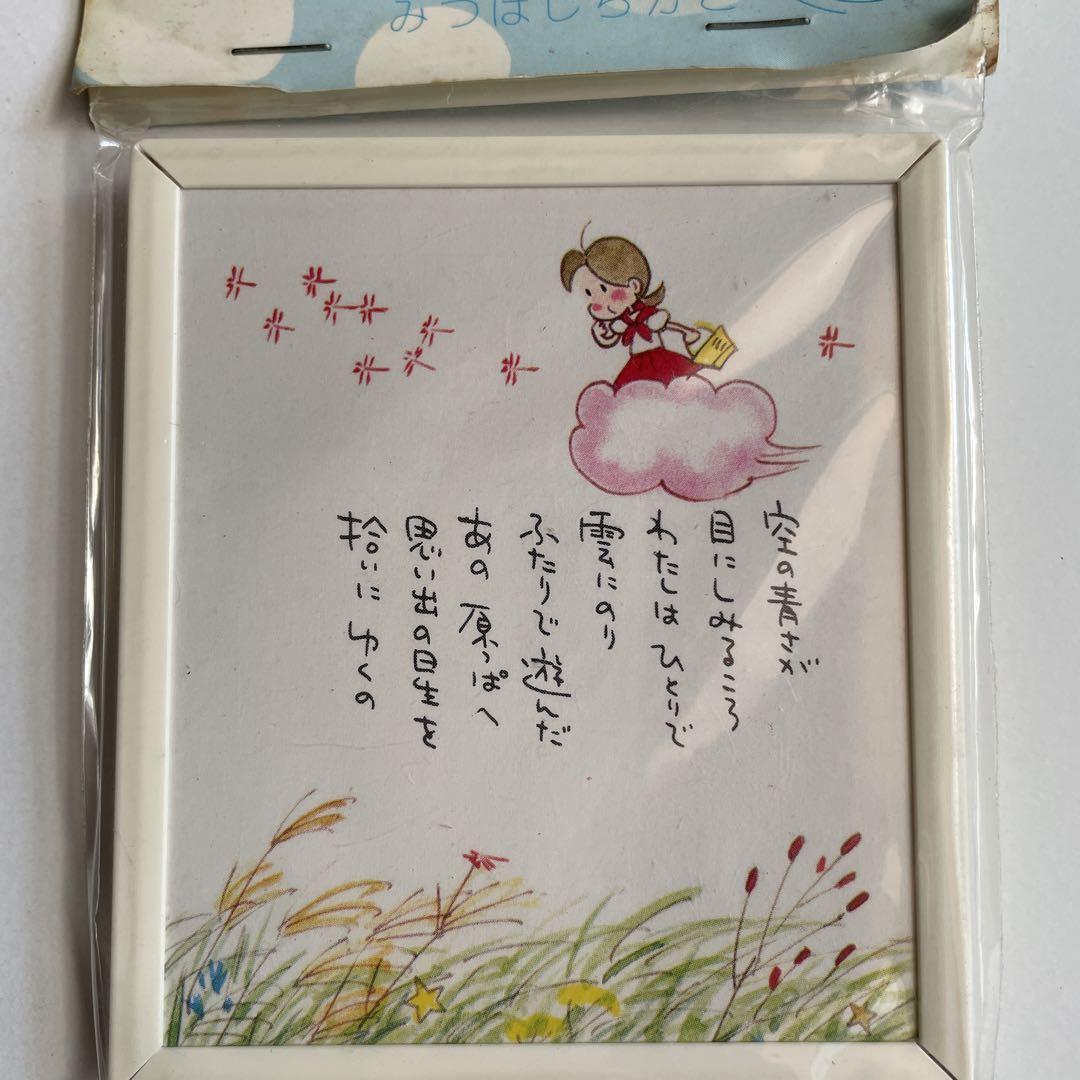 みつはしちかこ
空の青さが
目にしみるころ
わたしは ひとりで
雲にのり
ふたりで遊んだ
あの 原っぱへ
思い出の日生を
拾いに ゆくの